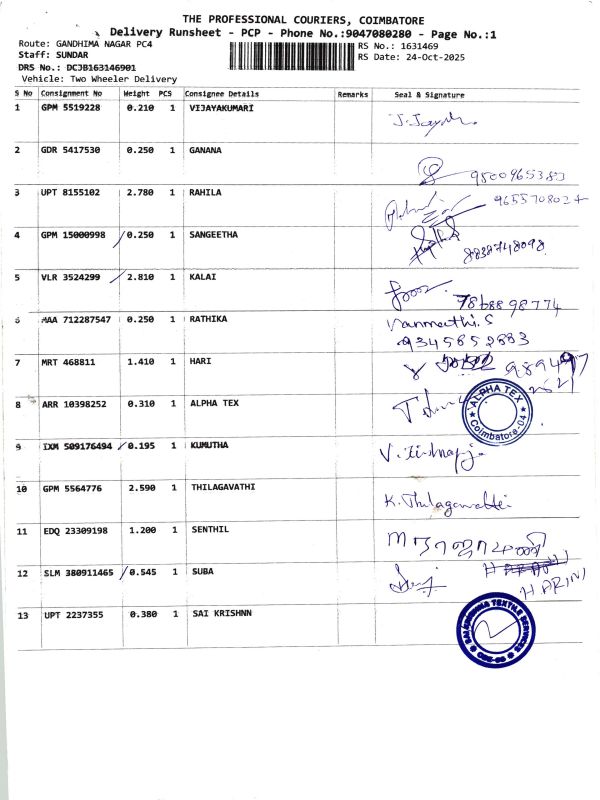 THE PROFESSIONAL COURIERS, COIMBATORE
Delivery Runsheet - PCP - Phone No.:9047080280 - Page No.:1
Route: GANDHIMA NAGAR PC4 RS No.: 1631469
Staff: SUNDAR RS Date: 24-Oct-2025
DRS No.: DCJB163146901
Vehicle: Two Wheeler Delivery
S No Consignment No Weight PCS Consignee Details Remarks Seal & Signature
1 GPM 5519228 0.210 1 VIJAYAKUMARI
2 GDR 5417530 0.250 1 GANANA
9500965383
3 UPT 8155102 2.780 1 RAHILA
9655708024
4 GPM 15000998 0.250 1 SANGEETHA
8838748098
5 VLR 3524299 2.810 1 KALAI
7868898774
6 MAA 712287547 0.250 1 RATHIKA
Vanmathi.S
9345652883
7 MRT 468811 1.410 1 HARI
8 ARR 10398252 0.310 1 ALPHA TEX
ALPHA TEX
Coimbatore-04
9 IXM 509176494 0.195 1 KUMUTHA
10 GPM 5564776 2.590 1 THILAGAVATHI
K. Thilagavathi
11 EDQ 23309198 1.200 1 SENTHIL
12 SLM 380911465 0.545 1 SUBA
HARINI
13 UPT 2237355 0.380 1 SAI KRISHNN